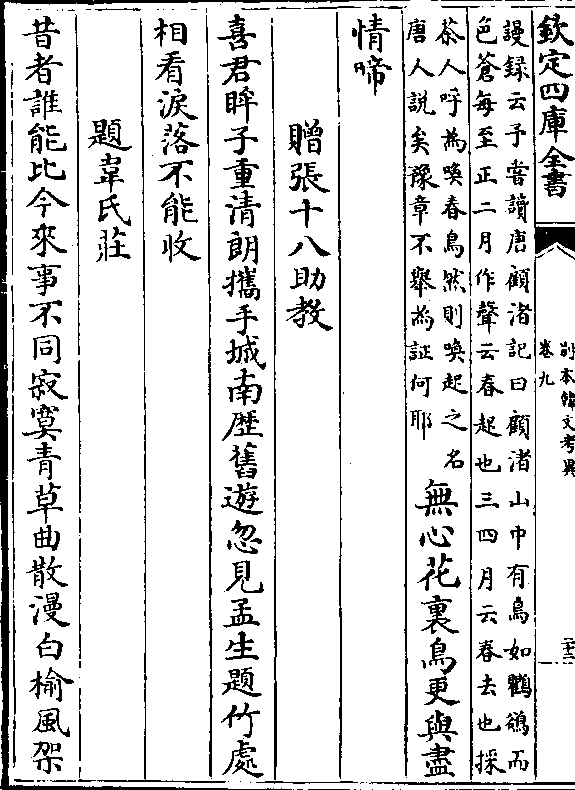 欽定四庫全書
別本韓文考異
卷九
謾録云予嘗讀唐顧渚記曰顧渚山中有鳥如鸜鵒而
色蒼每至正二月作聲云春起也三四月云春去也採
茶人呼為喚春鳥然則喚起之名
唐人説矣豫章不舉為証何耶
無心花裏鳥更與盡
情啼
贈張十八助教
喜君眸子重清朗攜手城南歴舊遊忽見孟生題竹處
相看淚落不能收
題韋氏莊
昔者誰能比今來事不同寂寞青草曲散漫白榆風架